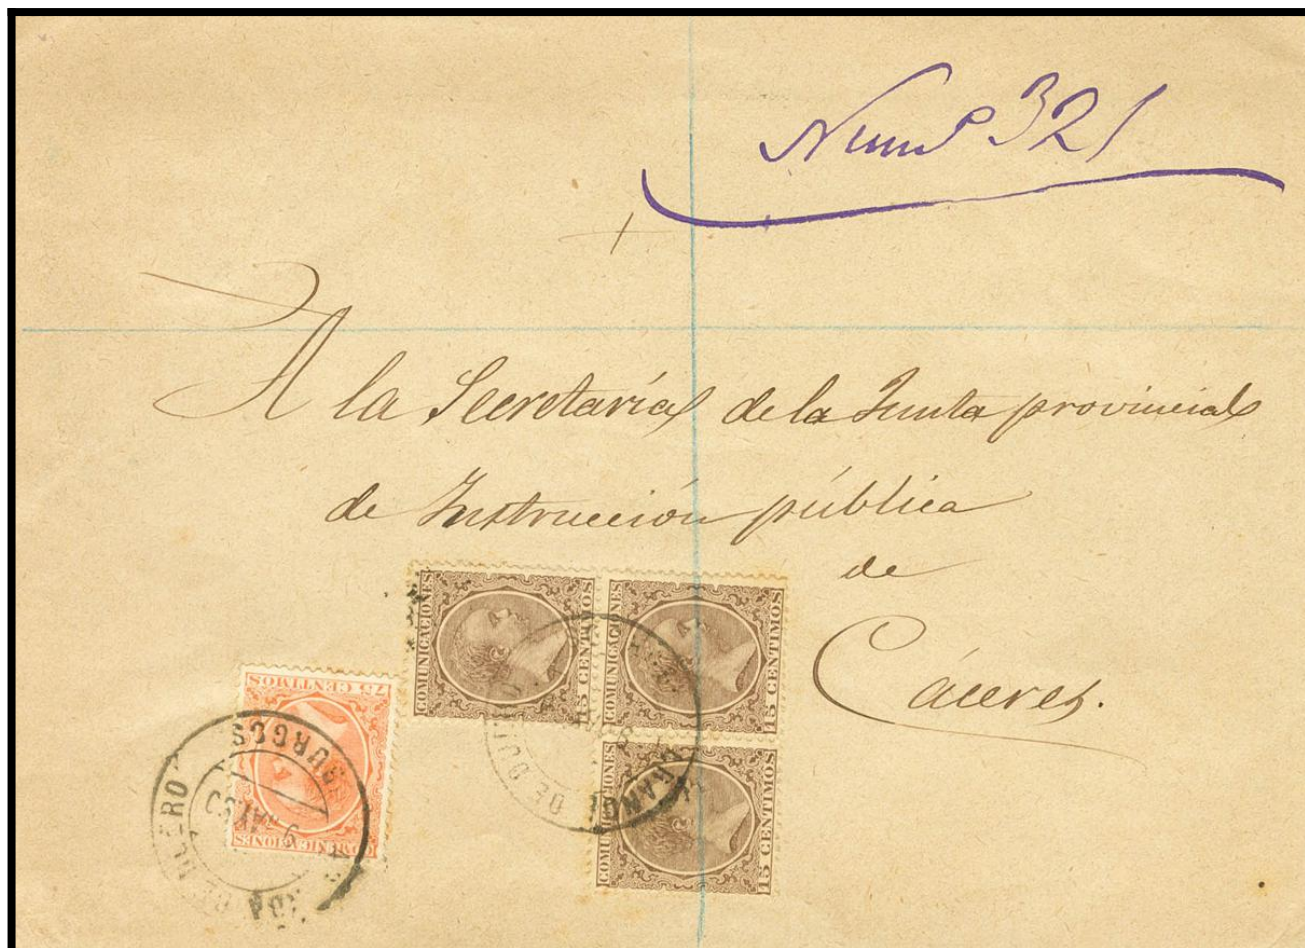 Num.º 321
A la Secretaría de la Junta provincial
de Instrucción pública
de
Cáceres.
COMUNICACIONES
15 CENTIMOS
COMUNICACIONES
15 CENTIMOS
COMUNICACIONES
15 CENTIMOS
75 CENTIMOS
COMUNICACIONES
BURGOS